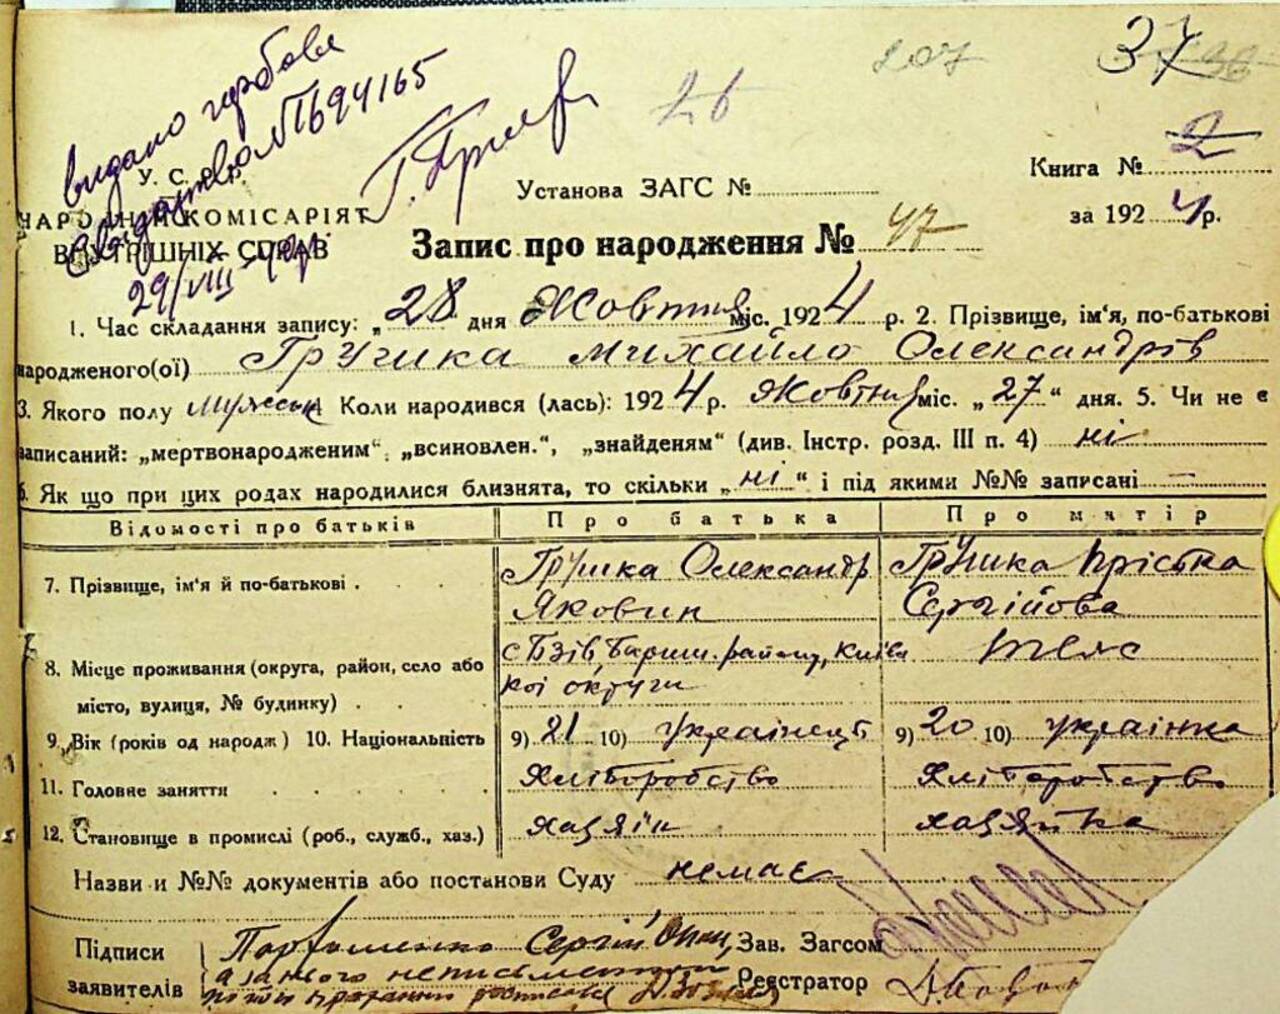 видано гербове
свідоцтво № 694165
29/VIII
26
207
37
У. С. Р. Р.
НАРОДНИЙ КОМІСАРІЯТ
ВНУТРІШНІХ СПРАВ
Установа ЗАГС №
Книга № 2
за 1924 р.
Запис про народження № 47
1. Час складання запису: „28 дня Жовтня міс. 1924 р. 2. Прізвище, ім'я, по-батькові
народженого(ої) Грушка Михайло Олександрів
3. Якого полу мужськ Коли народився (лась): 1924 р. Жовтня міс. „27“ дня. 5. Чи не є
записаний: „мертвонародженим“, „всиновлен.“, „знайденям“ (див. Інстр. розд. III п. 4) ні
6. Як що при цих родах народилися близнята, то скільки „ні“ і під якими №№ записані —
Відомості про батьків Про батька Про матір
7. Прізвище, ім'я й по-батькові . Грушка Олександр Яковин Грушка Пріська Сергійова
8. Місце проживання (округа, район, село або місто, вулиця, № будинку) . с Бзів, Бариш. району, Київської округи теж
9. Вік (років од народж) 10. Національність 9) 21 10) українець 9) 20 10) українка
11. Головне заняття Хліборобство Хліборобство
12. Становище в промислі (роб., служб., хаз.) хазяїн хазяйка
Назви и №№ документів або постанови Суду немає
Підписи Пархоменко Сергій Зав. Загсом
заявителів а за нього неписьменного Реєстратор